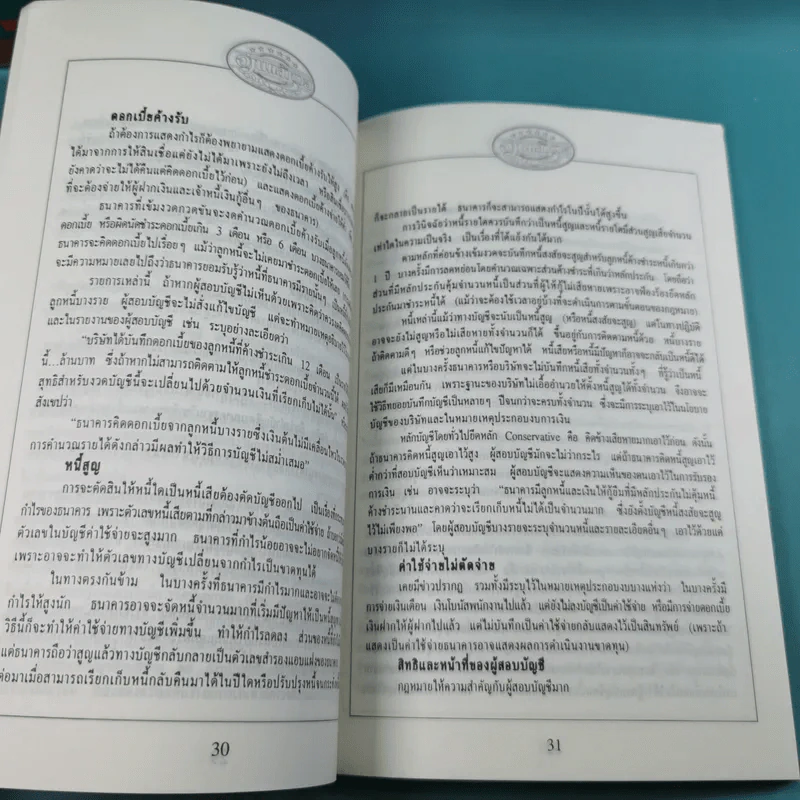 ดอกเบี้ยค้างรับ
ถ้าต้องการแสดงกำไรก็ต้องพยายามแสดงดอกเบี้ยค้างรับให้สูง
ได้มาจากการให้สินเชื่อแต่ยังไม่ได้มาเพราะยังไม่ถึงเวลา
ยังคาดว่าจะไม่ได้คืนแต่คิดดอกเบี้ยไว้ก่อน) และแสดงดอกเบี้ยค้างจ่าย
ที่จะต้องจ่ายให้ผู้ฝากเงินและเจ้าหนี้เงินกู้อื่นๆ ของธนาคาร)
ธนาคารที่เข้มงวดกวดขันจะงดคำนวณดอกเบี้ยค้างรับเมื่อลูกหนี้
ดอกเบี้ย หรือผิดนัดชำระดอกเบี้ยเกิน 3 เดือน หรือ 6 เดือน
ธนาคารจะคิดดอกเบี้ยไปเรื่อยๆ แม้ว่าลูกหนี้จะไม่เคยมาชำระดอกเบี้ยให้เลย
จะมีความหมายเลยไปถึงว่าธนาคารยอมรับรู้ว่าหนี้ที่ธนาคารมีรายนั้นๆ
รายการเหล่านี้ ถ้าหากผู้สอบบัญชีไม่เห็นด้วยเพราะคิดว่าควร
ลูกหนี้บางราย ผู้สอบบัญชีจะไม่สั่งแก้ไขบัญชี แต่จะทำหมายเหตุ
และในรายงานของผู้สอบบัญชี เช่น ระบุอย่างละเอียดว่า
"บริษัทได้บันทึกดอกเบี้ยของลูกหนี้ที่ค้างชำระเกิน 12 เดือน
นี้...ล้านบาท ซึ่งถ้าหากไม่สามารถติดตามให้ลูกหนี้ชำระดอกเบี้ยจำนวนนี้ได้
สุทธิสำหรับงวดบัญชีนี้จะเปลี่ยนไปด้วยจำนวนเงินที่เรียกเก็บไม่ได้นั้น"
สังเขปว่า
"ธนาคารคิดดอกเบี้ยจากลูกหนี้บางรายซึ่งเงินต้นไม่มีเคลื่อนไหว
การคำนวณรายได้ดังกล่าวมีผลทำให้วิธีการบัญชีไม่สม่ำเสมอ"
หนี้สูญ
การจะตัดสินให้หนี้ใดเป็นหนี้เสียต้องตัดบัญชีออกไป เป็นเรื่อง
กำไรของธนาคาร เพราะตัวเลขหนี้เสียตามที่กล่าวมาข้างต้นถือเป็นค่าใช้จ่าย
ตัวเลขในบัญชีค่าใช้จ่ายจะสูงมาก ธนาคารที่กำไรน้อยอาจจะไม่อยากตัดหนี้
เพราะอาจจะทำให้ตัวเลขทางบัญชีเปลี่ยนจากกำไรเป็นขาดทุนได้
ในทางตรงกันข้าม ในบางครั้งที่ธนาคารมีกำไรมากและอาจจะไม่
กำไรให้สูงนัก ธนาคารอาจจะจัดหนี้จำนวนมากที่เริ่มมีปัญหาให้เป็นหนี้สูญ
วิธีนี้ก็จะทำให้ค่าใช้จ่ายทางบัญชีเพิ่มขึ้น ทำให้กำไรลดลง ส่วนของหนี้
แต่ธนาคารถือว่าสูญแล้วทางบัญชีกลับกลายเป็นตัวเลขสำรองแอบแฝงของธนาคาร
ต่อมาเมื่อสามารถเรียกเก็บหนี้กลับคืนมาได้ในปีใดหรือปรับปรุงหนี้จน
30
ก็จะกลายเป็นรายได้ ธนาคารก็จะสามารถแสดงกำไรในปีนั้นได้สูงขึ้น
การวินิจฉัยว่าหนี้รายใดควรบันทึกว่าเป็นหนี้สูญและหนี้รายใดมีส่วนสูญเสียจำนวน
เท่าใดในความเป็นจริง เป็นเรื่องที่โต้แย้งกันได้มาก
ตามหลักที่ค่อนข้างเข้มงวดจะบันทึกหนี้สงสัยจะสูญสำหรับลูกหนี้ค้างชำระหนี้เกินกว่า
1 ปี บางครั้งมีการลดหย่อนโดยคำนวณเฉพาะส่วนค้างชำระที่เกินกว่าหลักประกัน โดยถือว่า
ส่วนที่มีหลักประกันคุ้มจำนวนหนี้เป็นส่วนที่ผู้ให้กู้ไม่เสียหายเพราะอาจฟ้องร้องยึดหลัก
ประกันมาชำระหนี้ได้ (แม้ว่าจะต้องใช้เวลาอยู่บ้างที่จะดำเนินการตามขั้นตอนของกฎหมาย)
หนี้เหล่านี้แม้ว่าทางบัญชีจะนับเป็นหนี้สูญ (หรือหนี้สงสัยจะสูญ) แต่ในทางปฏิบัติ
อาจจะยังไม่สูญหรือไม่เสียหายทั้งจำนวนก็ได้ ขึ้นอยู่กับการติดตามหนี้ด้วย หนี้บางราย
ถ้าติดตามดีๆ หรือช่วยลูกหนี้แก้ไขปัญหาได้ หนี้เสียหรือหนี้มีปัญหาก็อาจจะกลับเป็นหนี้ดีได้
แต่ในบางครั้งธนาคารหรือบริษัทจะไม่บันทึกหนี้เสียทั้งจำนวนทั้งๆ ที่รู้ว่าเป็นหนี้
เสียก็มีเหมือนกัน เพราะฐานะของบริษัทไม่เอื้ออำนวยให้ตั้งหนี้สูญได้ทั้งจำนวน จึงอาจจะ
ใช้วิธีทยอยบันทึกบัญชีเป็นหลายๆ ปีจนกว่าจะครบทั้งจำนวน ซึ่งจะมีการระบุเอาไว้ในนโยบาย
บัญชีของบริษัทและในหมายเหตุประกอบงบการเงิน
หลักบัญชีโดยทั่วไปยึดหลัก Conservative คือ คิดข้างเสียหายมากเอาไว้ก่อน ดังนั้น
ถ้าธนาคารคิดหนี้สูญเอาไว้สูง ผู้สอบบัญชีมักจะไม่ว่ากระไร แต่ถ้าธนาคารคิดหนี้สูญเอาไว้
ต่ำกว่าที่ผู้สอบบัญชีเห็นว่าเหมาะสม ผู้สอบบัญชีจะแสดงความเห็นของตนเอาไว้ในการรับรอง
การเงิน เช่น อาจจะระบุว่า "ธนาคารมีลูกหนี้และเงินให้กู้ยืมที่มีหลักประกันไม่คุ้มหนี้
ค้างชำระนานและคาดว่าจะเรียกเก็บหนี้ไม่ได้เป็นจำนวนมาก ซึ่งยังตั้งบัญชีหนี้สงสัยจะสูญ
ไว้ไม่เพียงพอ" โดยผู้สอบบัญชีบางรายจะระบุจำนวนหนี้และรายละเอียดอื่นๆ เอาไว้ด้วยแต่
บางรายก็ไม่ได้ระบุ
ค่าใช้จ่ายไม่ตัดจ่าย
เคยมีข่าวปรากฏ รวมทั้งมีระบุไว้ในหมายเหตุประกอบงบบางแห่งว่า ในบางครั้งมี
การจ่ายเงินเดือน เงินโบนัสพนักงานไปแล้ว แต่ยังไม่ลงบัญชีเป็นค่าใช้จ่าย หรือมีการจ่ายดอกเบี้ย
เงินฝากให้ผู้ฝากไปแล้ว แต่ไม่บันทึกเป็นค่าใช้จ่ายกลับแสดงไว้เป็นสินทรัพย์ (เพราะถ้า
แสดงเป็นค่าใช้จ่ายธนาคารอาจแสดงผลการดำเนินงานขาดทุน)
สิทธิและหน้าที่ของผู้สอบบัญชี
กฎหมายให้ความสำคัญกับผู้สอบบัญชีมาก
31